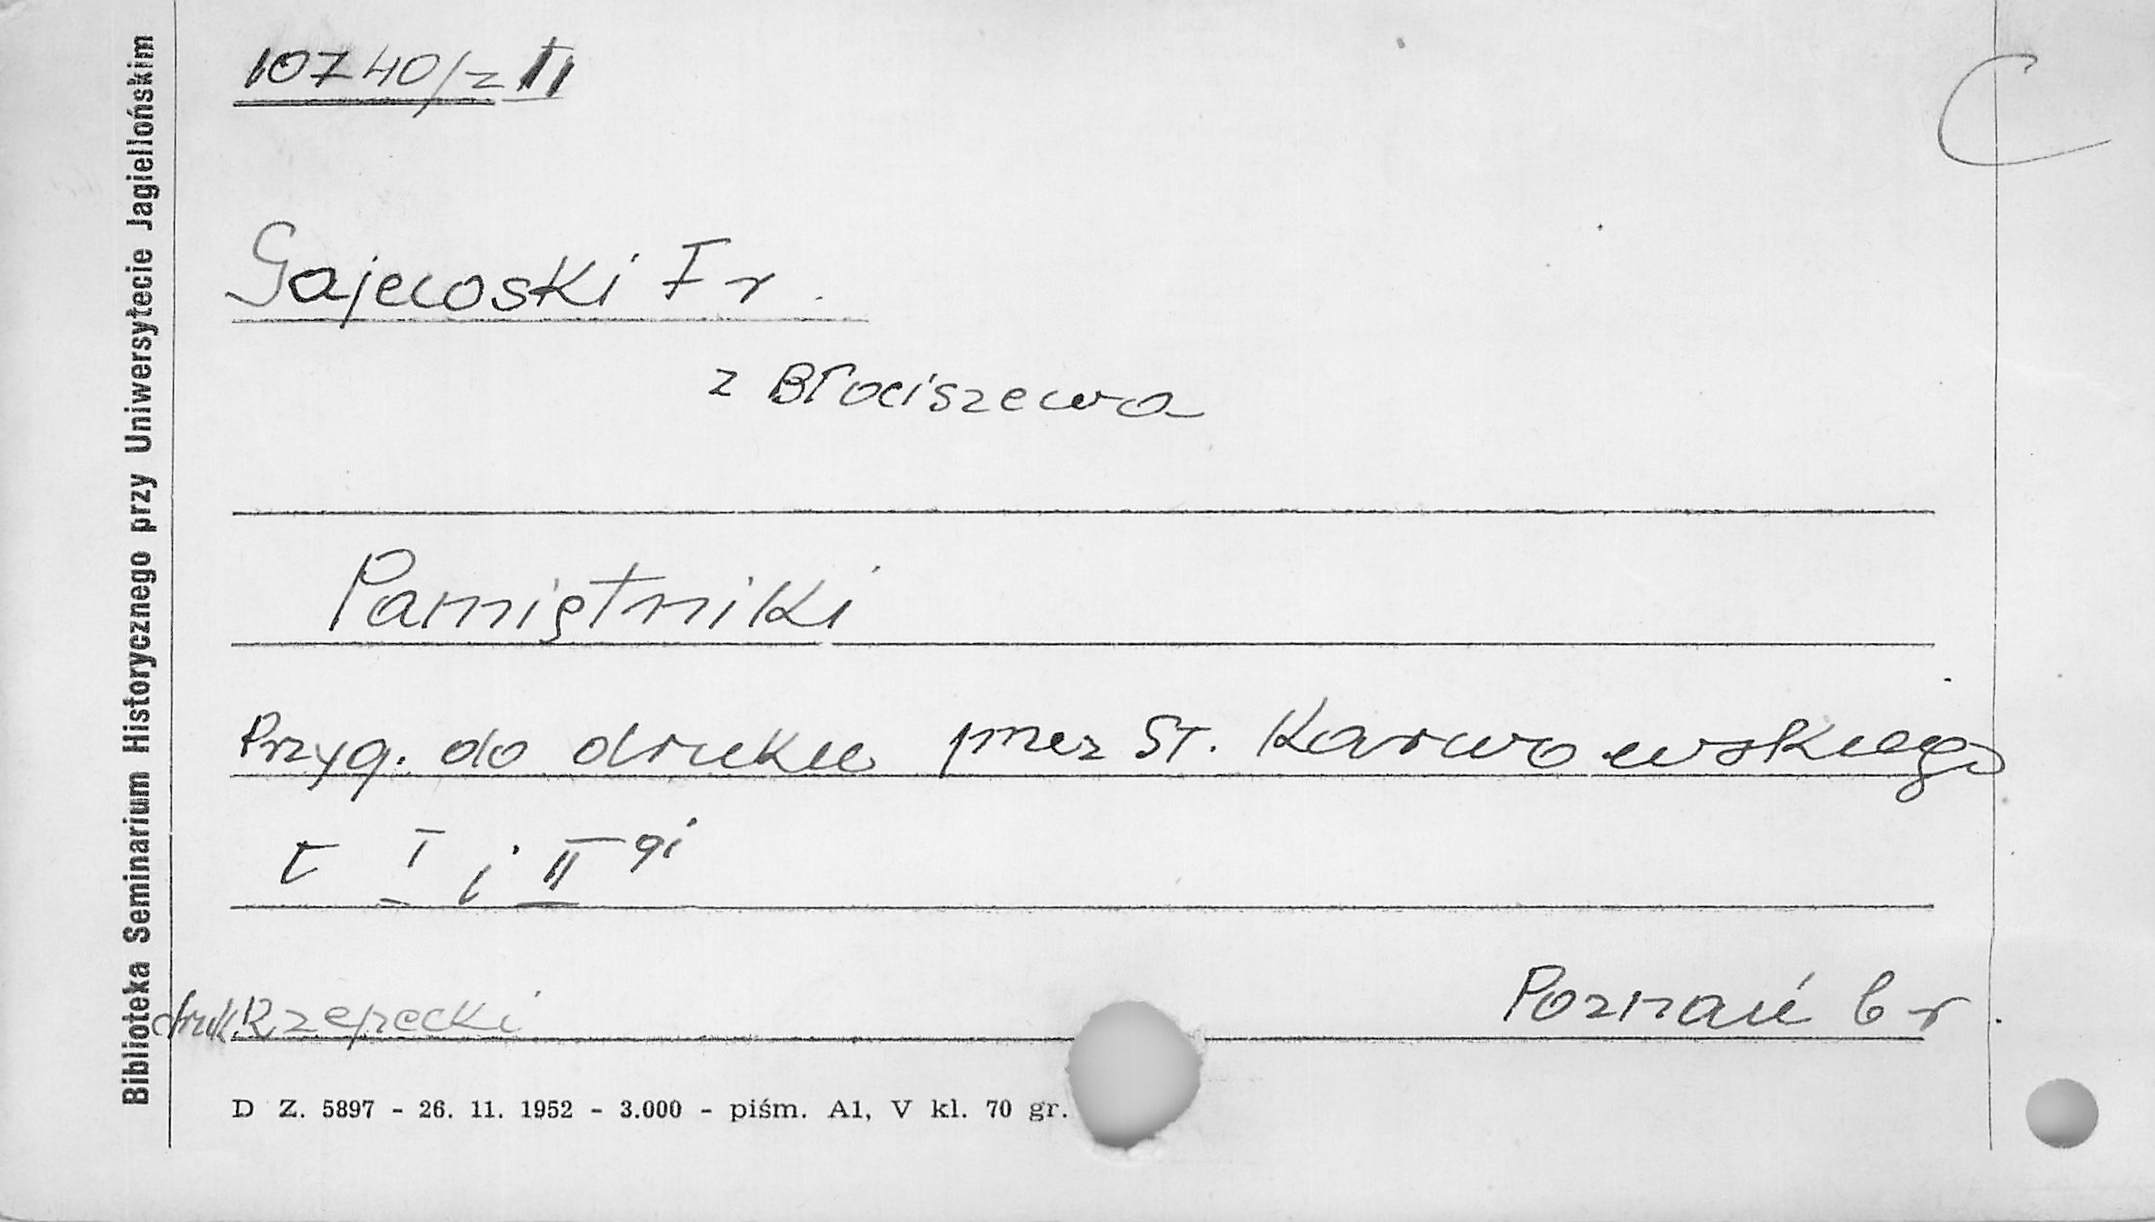 10740/z II
C
Gajewski Fr.
z Błociszewa
Pamiętniki
Przyg. do druku przez St. Karwowskiego
t I i II gi
druk. Rzepecki
Poznań b r.
D Z. 5897 - 26. 11. 1952 - 3.000 - piśm. A1, V kl. 70 gr.
Biblioteka Seminarium Historycznego przy Uniwersytecie Jagiellońskim